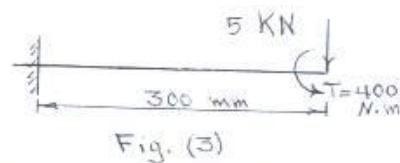 5 KN
T=400
N.m
300 mm
Fig. (3)